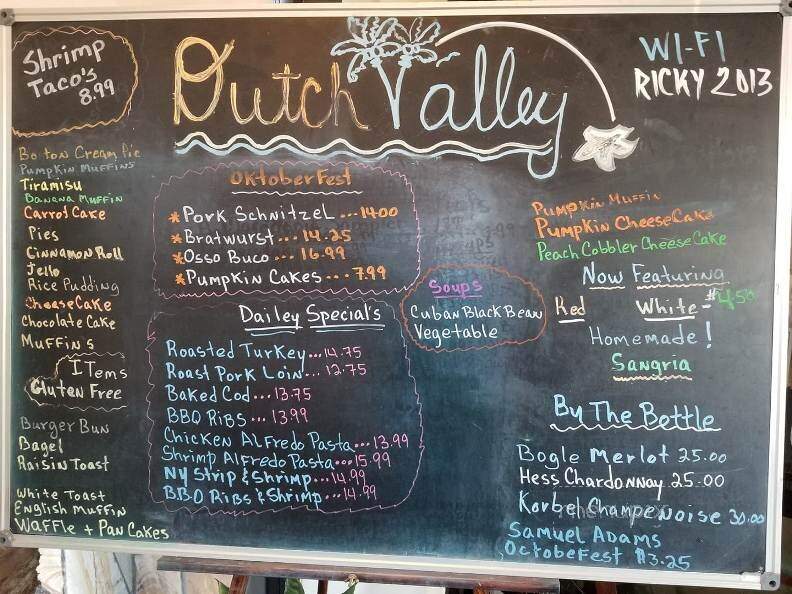 Shrimp
Taco's
8.99
Dutch Valley
WI-FI
RICKY 2013
Boston Cream Pie
Pumpkin Muffins
Tiramisu
Banana Muffin
Carrot Cake
Pies
Cinnamon Roll
Jello
Rice Pudding
CheeseCake
Chocolate Cake
Muffins
ITems
Gluten Free
Burger Bun
Bagel
Raisin Toast
White Toast
English Muffin
Waffle + Pan Cakes
OktoberFest
*Pork Schnitzel ... 14.00
*Bratwurst ... 14.25
*Osso Buco ... 16.99
*Pumpkin Cakes ... 7.99
Dailey Special's
Roasted Turkey... 14.75
Roast Pork Loin... 12.75
Baked Cod... 13.75
BBQ Ribs... 13.99
Chicken Alfredo Pasta... 13.99
Shrimp Alfredo Pasta... 15.99
NY Strip & Shrimp... 14.99
BBQ Ribs & Shrimp... 14.99
Soups
Cuban Black Bean
Vegetable
Pumpkin Muffin
Pumpkin CheeseCake
Peach Cobbler CheeseCake
Now Featuring
Red White - $4.50
Homemade!
Sangria
By The Bottle
Bogle Merlot 25.00
Hess Chardonnay 25.00
Korbel Champenoise 30.00
Samuel Adams
OctobeFest $3.25